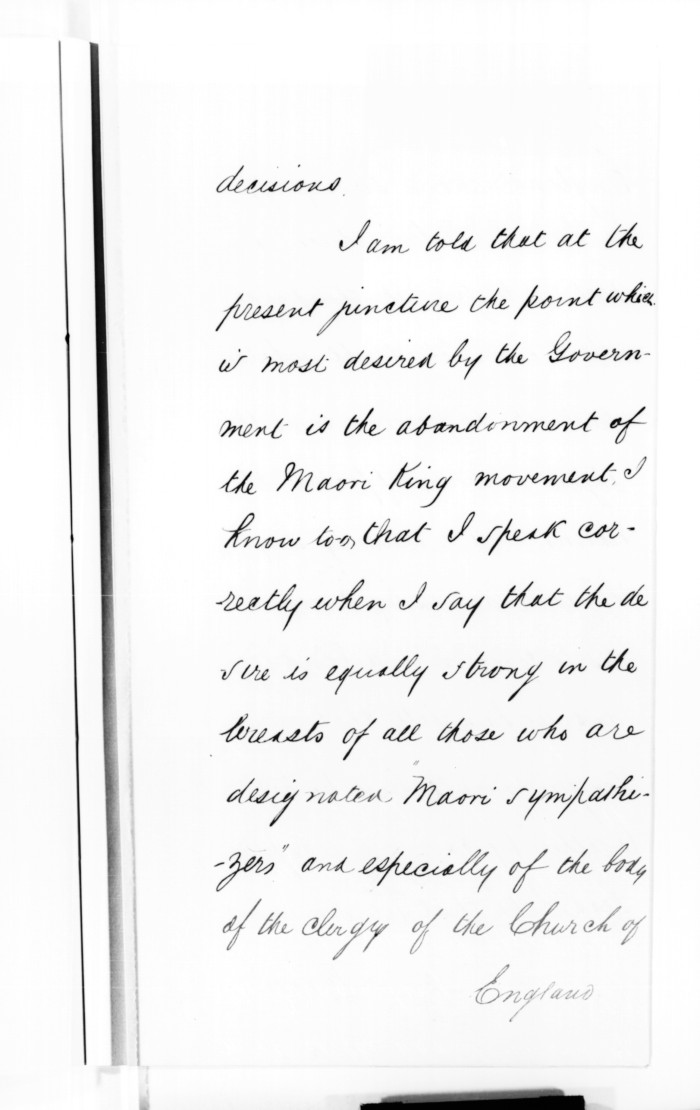 decisions.
I am told that at the
present juncture the point which
is most desired by the Govern-
ment is the abandonment of
the Maori King movement. I
know too, that I speak cor-
-rectly when I say that the de
sire is equally strong in the
breasts of all those who are
designated "Maori sympathi-
-zers" and especially of the body
of the clergy of the Church of
England